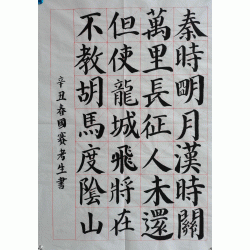 秦時明月漢時關
萬里長征人未還
但使龍城飛將在
不教胡馬度陰山
辛丑春國賽考生書